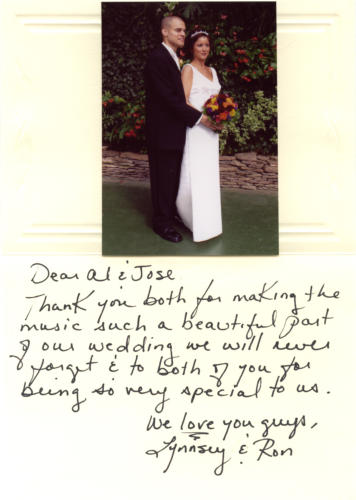 Dear Al & Jose
Thank you both for making the
music such a beautiful part
of our wedding we will never
forget & to both of you for
being so very special to us.
We love you guys,
Lynnsey & Ron